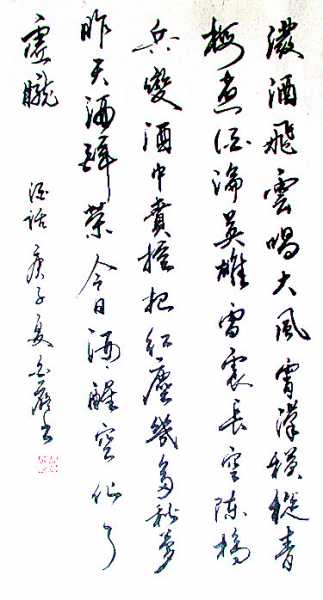 酒飛雲唱大風霄漢橫縱青
梅煮酒論英雄雷震長空陳橋
兵變酒中貴權把紅塵幾多秋夢
昨天酒醉榮今日酒醒空化了
虛朧
酒話 庚子夏 書